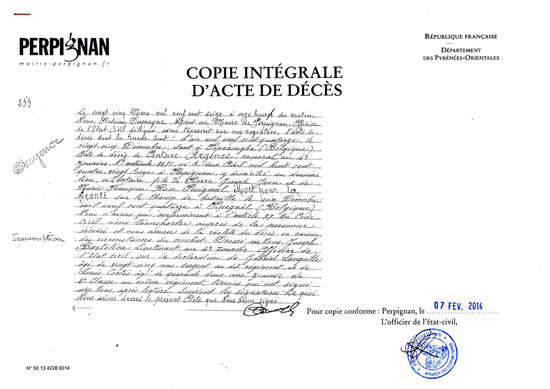 PERPIGNAN
mairie-perpignan.fr
RÉPUBLIQUE FRANÇAISE
DÉPARTEMENT
DES PYRÉNÉES-ORIENTALES
COPIE INTÉGRALE
D'ACTE DE DÉCÈS
253
Transcription
Le vingt cinq Mars mil neuf cent seize, à onze heures du matin
Nous, Antoine Adjoint au Maire de Perpignan, Officier
de l'Etat Civil délégué, avons transcrit sur nos registres, l'acte de
décès dont la teneur suit = L'an mil neuf cent quatorze, le
vingt cinq Décembre, étant à (Belgique)
Acte de décès de Antoine caporal au 4e
zouaves,
quatre vingt à Perpignan, y domicilié en dernier
lieu fils de Pierre Joseph Jean et de
Marie Françoise Rose Puignal Mort pour la
France sur le champ de bataille le six Décembre
mil neuf cent quatorze à (Belgique)
Nous n'avons pu conformément à l'article 77 du Code
civil, nous transporter auprès de la personne
décédée et nous assurer de la réalité du décès en raison
des circonstances du combat Dressé par Nous Joseph
Lieutenant au 4e zouaves Officier de
l'état civil, sur la déclaration de Gabriel
âgé de vingt cinq ans sergent au dit régiment et de
Louis âgé de quarante deux ans zouave de
2e Classe au même régiment témoins qui ont signé
avec Nous, après lecture. Suivent les signatures. De quoi
Nous avons dressé le présent Acte que Nous avons signé
Pour copie conforme : Perpignan, le 07 FEV. 2014
L'officier de l'état-civil,
N° 50 13 4228 0014